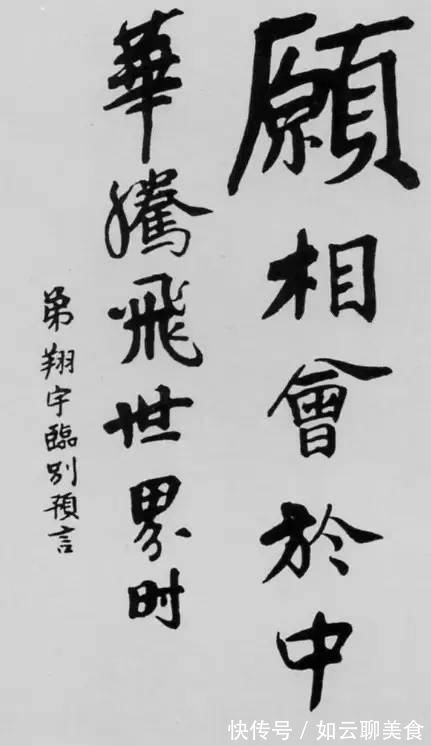 願相會於中
華騰飛世界时
弟翔宇臨别預言
快传号 / 如云聊美食